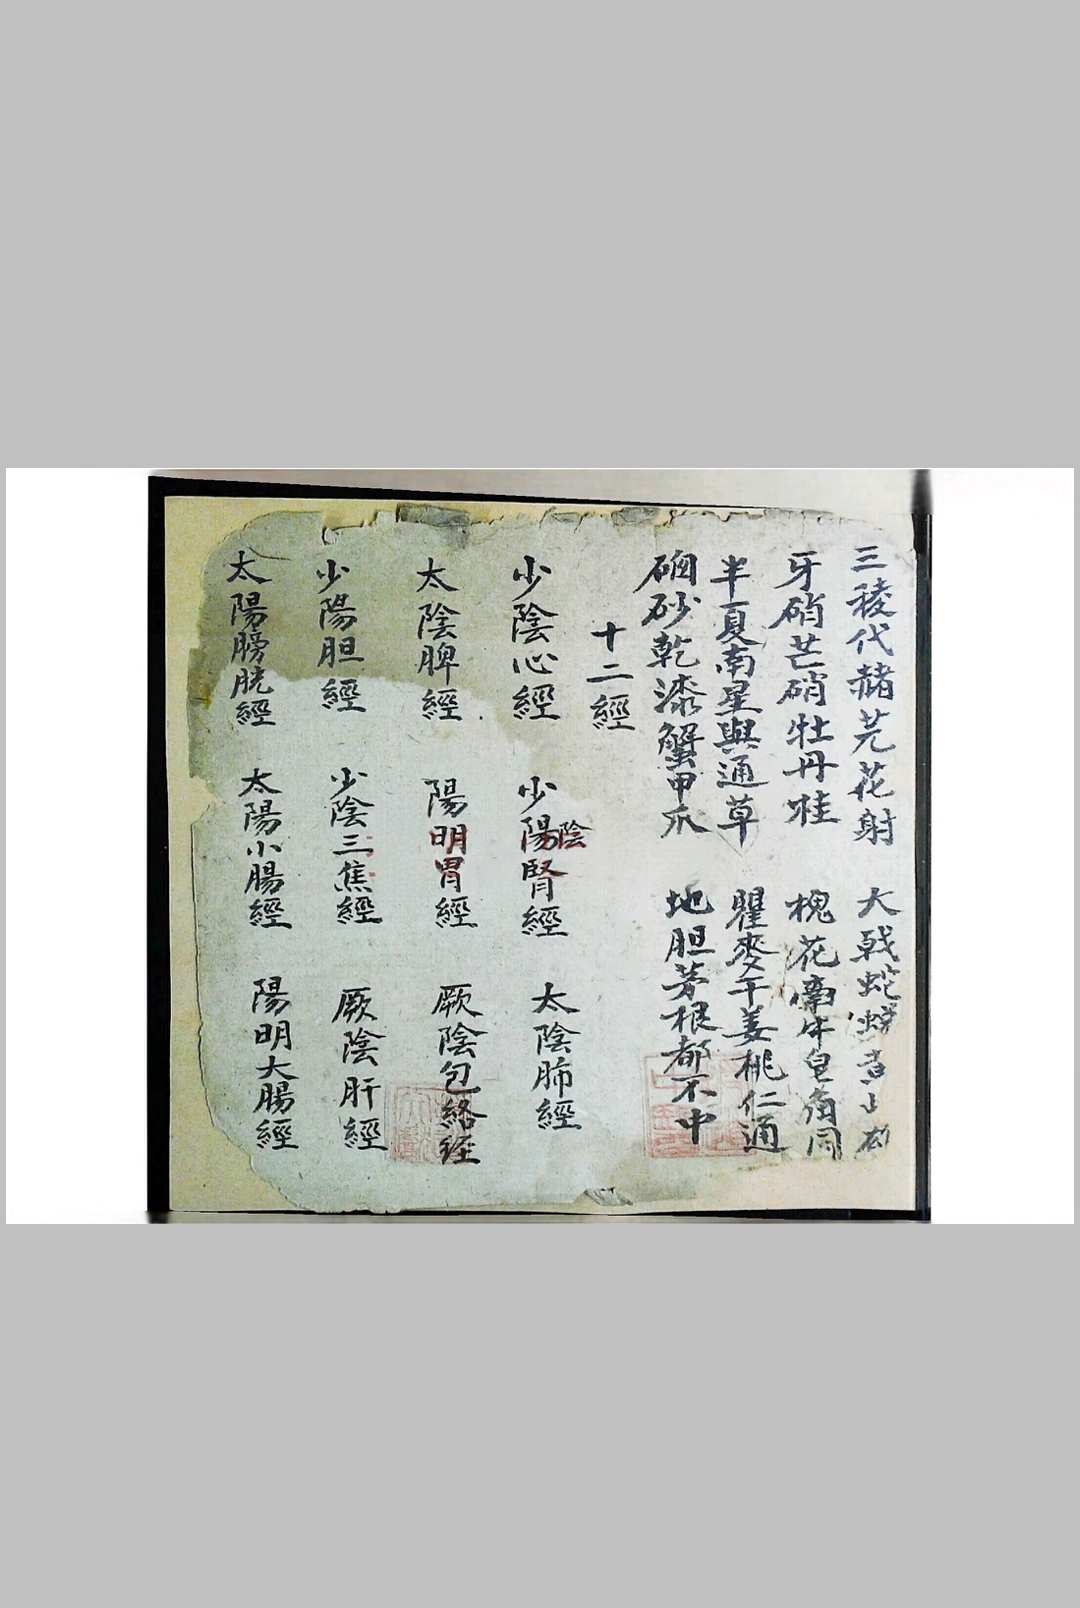 三稜代赭芫花射 大戟蛇
牙硝芒硝牡丹桂 槐花牽牛皂角同
半夏南星與通草 瞿麥干姜桃仁通
硇砂乾漆蟹甲爪 地胆茅根都不中
十二經
少陰心經 少陽陰腎經 太陰肺經
太陰脾經 陽明胃經 厥陰包絡経
少陽胆經 少陰三焦經 厥陰肝經
太陽膀胱經 太陽小腸經 陽明大腸經